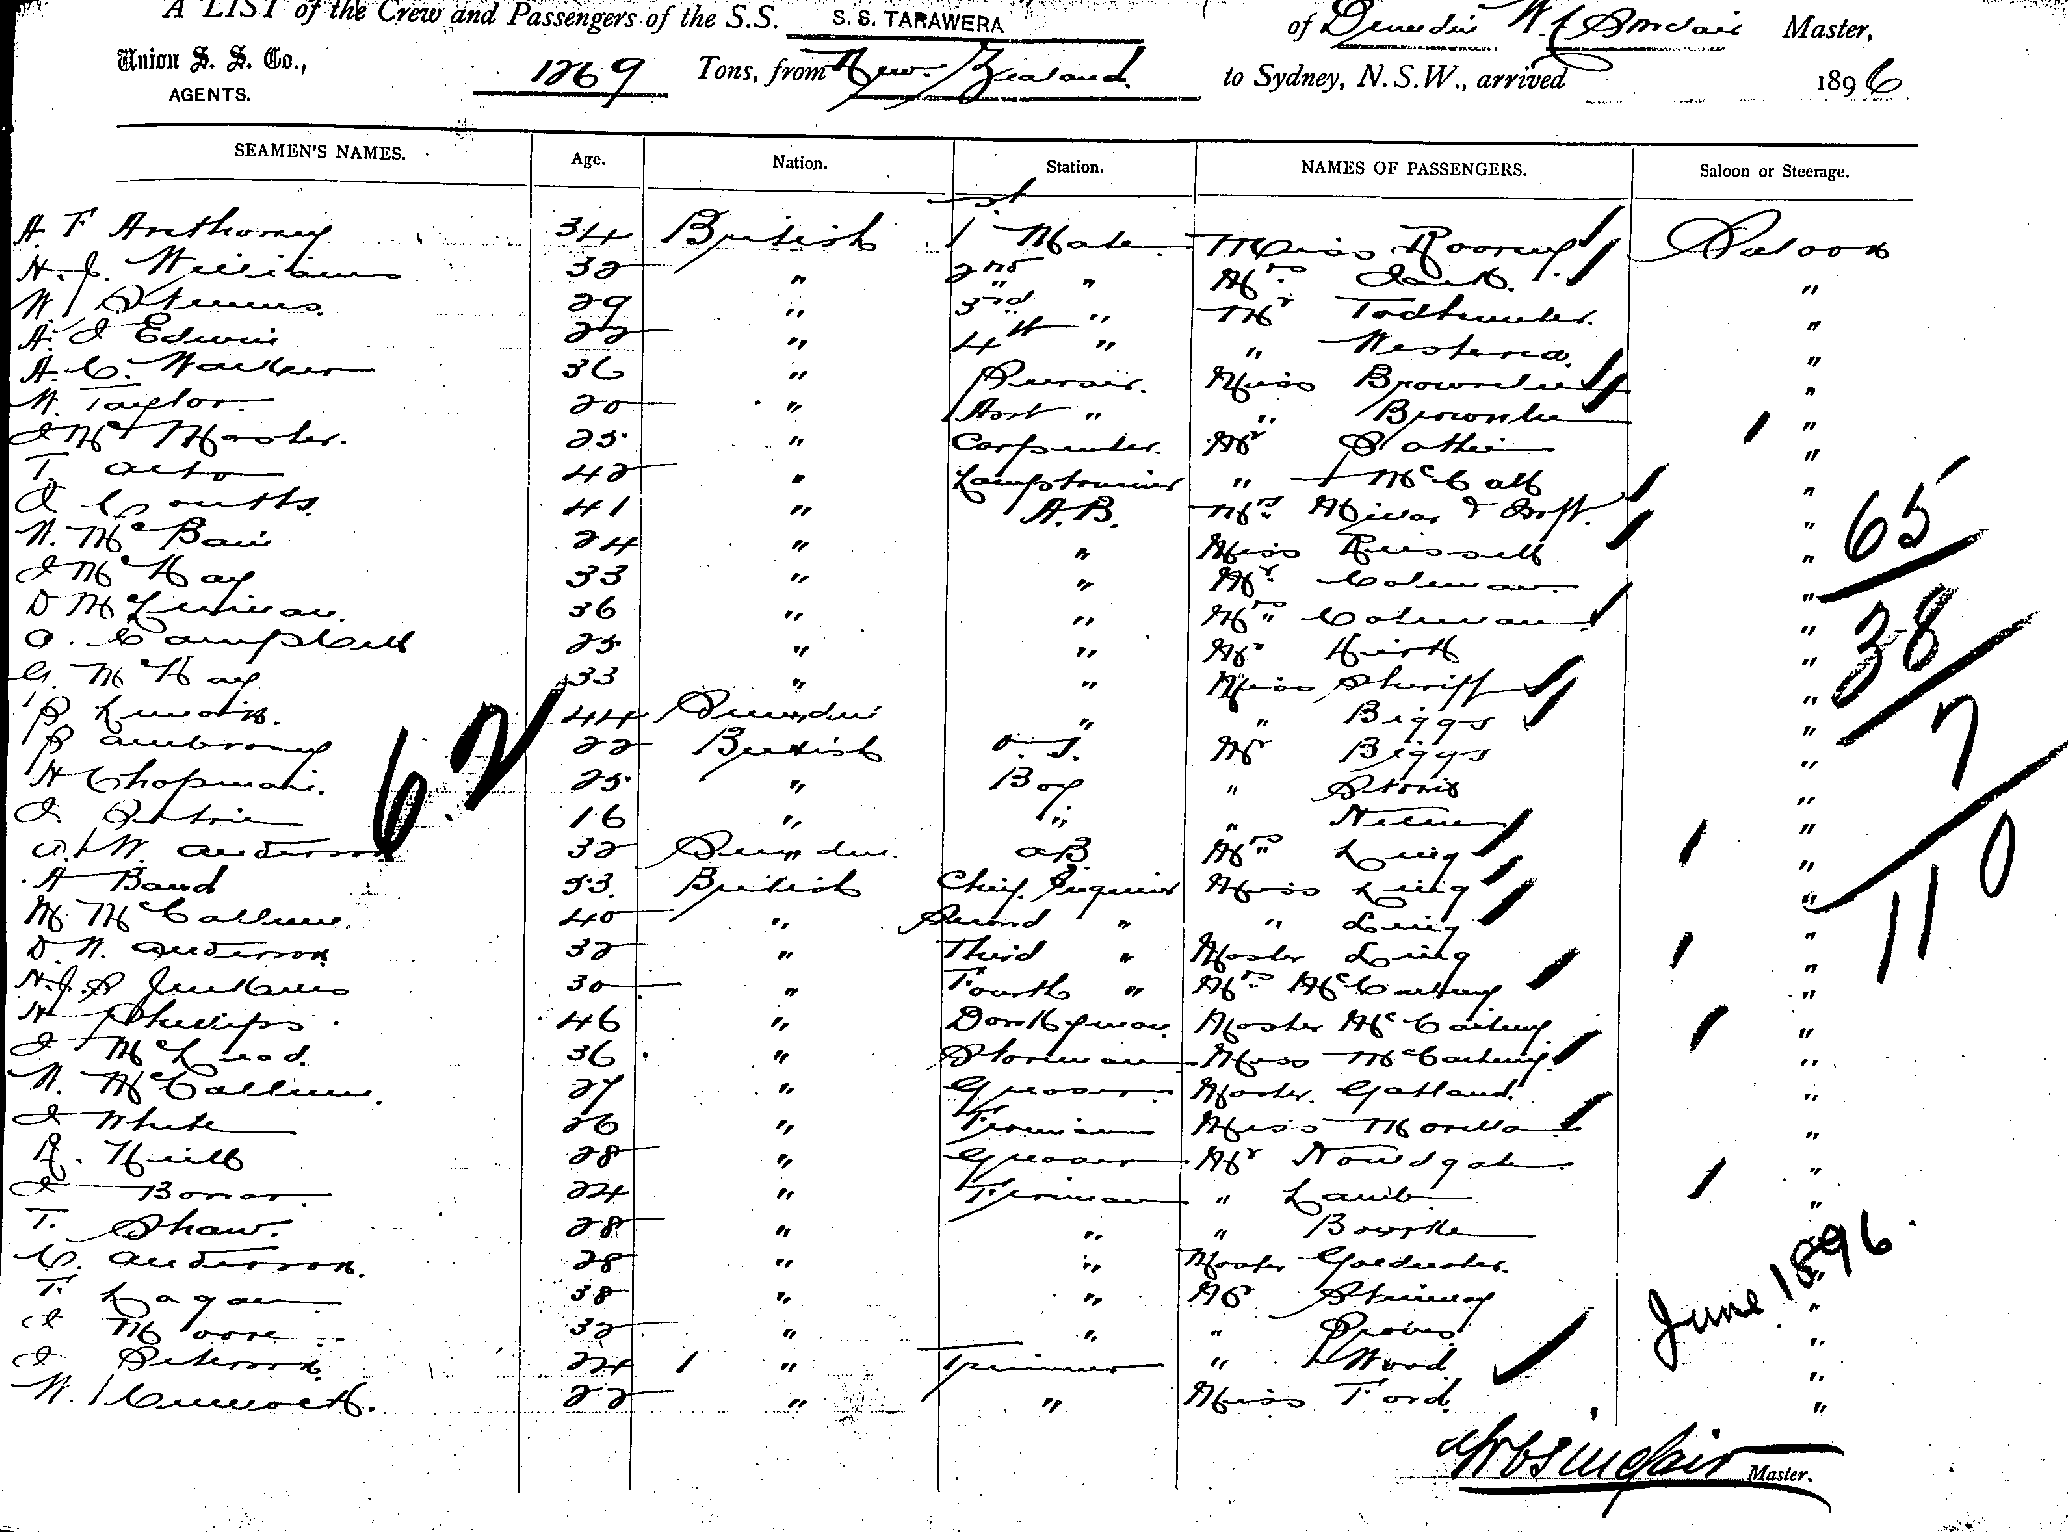 A LIST of the Crew and Passengers of the S.S. S. S. TARAWERA of Dunedin W C Sinclair Master,
Union S. S. Co., AGENTS. 1269 Tons, from New Zealand to Sydney, N.S.W., arrived 1896
SEAMEN'S NAMES. Age. Nation. Station. NAMES OF PASSENGERS. Saloon or Steerage.
A F Anthoney 34 British 1st Mate Miss Rooney Saloon
H. J. Williams 32 " 2nd " Mrs "
W 29 " 3rd " Mr Todhunter "
A. J Edwin 22 " 4th " " Westenra "
A. C. Walker 36 " Purser. Miss Brownlie "
W. Taylor 20 " Asst " " Brownlie "
J Mc Master. 25 " Carpenter. Mr "
T. 42 " Lamptrimmer " "
J. Coutts. 41 " A.B. Mrs "
N. Mc Bain 24 " " Miss Russell "
J McKay 33 " " Mr Coleman "
D McLennan. 36 " " Mrs Coleman "
A. Campbell 25 " " Mr "
G. McKay 33 " " Miss Sheriff "
P 44 " " Biggs "
P Ambrosey 22 British O.S. Mr Biggs "
H Chapman. 25 " Boy " "
J Petrie 16 " " " "
A. W. Anderson 32 AB Mrs "
A Baud 53 British Chief Engineer Miss "
M. McCallum. 40 " Second " " "
D. N. Anderson 32 " Third " Master "
H. J. P Jenkins 30 " Fourth " Mrs McCarthy "
H Phillips 46 " Donkeyman Master McCarthy "
J McLeod. 36 " Storeman Miss McCarthy "
N. McCallum. 27 " Greaser Master Gatland "
J White 26 " Fireman Miss "
R. Neill 28 " Greaser Mr "
J Bonar 24 " Fireman " Lamb "
T. Shaw. 28 " " " Bourke "
C. Anderson. 28 " " Master Goldwater. "
T. Lagan 38 " " Mr "
J Moore 32 " " " "
J Peterson 24 " Trimmer " Wood "
W. 22 " " Miss Ford. "
62
65
38
7
110
June 1896
W C Sinclair Master.